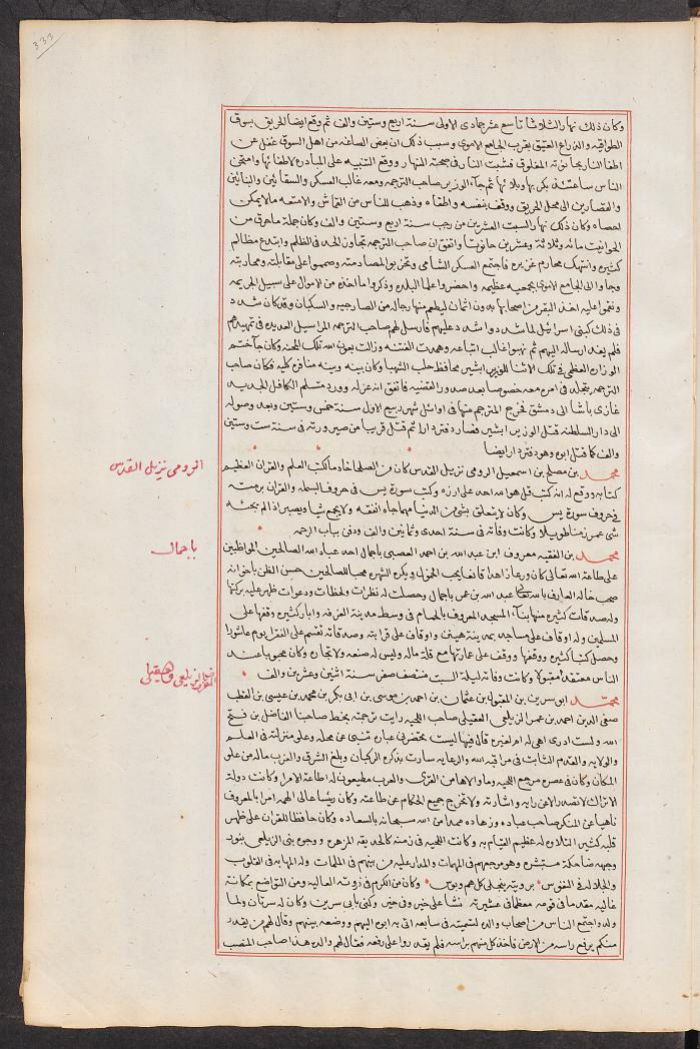 333
وكان ذلك نهار الثلاثا تاسع عشر جمادى الاولى سنة اربع وستين والف ثم وقع ايضا الحريق بسوق
الطواقيه والذراع العتيق بقرب الجامع الاموى وسبب ذلك ان بعض الصاغه من اهل السوق غفل عن
اطفا النار بحانوته المغلوق فشبت النار فى صبحته النهار ووقع التنبيه على المبادره لاطفائها وامتحن
الناس ساعتئذ بكربها وبلائها ثم جآء الوزير صاحب الترجمه ومعه غالب العسكر والسقائين والبنائين
والقصارين الى محل الحريق ووقف بنفسه واطفاه وذهب للناس من القماش والامتعه مالا يمكن
احصاه وكان ذلك نهار السبت العشرين من رجب سنة اربع وستين والف وكان جملة ما حرق من
الحوانيت مائه وثلاثة وعشرين حانوتا واتفق ان صاحب الترجمه تجاوز الحد فى الظلم وابتدع مظالم
كثيره وانتهك محارم غزيره فاجتمع العسكر الشامى وتحزبوا لمصادمته وصمموا على مقابلته ومحاربته
وجاوا الى الجامع الاموى بجمعيه عظيمه واحضروا علما البلده وذكروا ما اخذه من الاموال على سبيل الجريمه
ونقموا عليه اخذ البقر من اصحابها بدون اثمان ليطعم منها رجاله من الصارجيه والسكبان وقد كان شدد
فى ذلك كبنى اسرائيل لما شددوا شدد عليهم فارسل لهم صاحب الترجمه المراسيل العديده فى تمهيدهم
فلم يفد ارساله اليهم ثم نهبوا غالب اتباعه وهمدت الفتنه وزالت بعون الله تلك المحنه وكان جآ ختم
الوزاره العظمى فى تلك الاثنا للوزير ابشير محافظ حلب الشهبا وكان بينه وبينه منافره كليه فكان صاحب
الترجمه يتجلد فى امره معه خصوصا بعد صدور القضيه فاتفق انه عزله وورد متسلم الكافل الجديد
غازى باشا الى دمشق فخرج المترجم منها فى اوائل شهر ربيع الاول سنة خمس وستين وبعد وصوله
الى دار السلطنه قتل الوزير ابشير فصار دفتردارا ثم قتل قريبا من صيرورته فى سنة ست وستين
والف كما قتل ابوه وهو دفتردار ايضا
محمد بن مصلح بن اسمعيل الرومى نزيل القدس كان من الصلحا خادما لكتب العلم والقران العظيم
كتابه ووقع له انه كتب قل هو الله احد على ارزه وكتب سورة يس فى حروف البسمله والقران برمته
فى حروف سورة يس وكان لا يتعلق بشى من الدنيا مهما جاه انفقه ولا يجمع شيا ويصبر اذا لم يجئه
شى عمر زمنا طويلا وكانت وفاته فى سنة احدى وثمانين والف ودفن بباب الرحمه
محمد بن الفقيه معروف ابن عبد الله بن احمد العصبى باجمال احد عباد الله الصالحين المواظبين
على طاعة الله تعالى كان ورعا زاهدا قانعا يحب الخمول ويكره الشهره محبا للصالحين حسن الظن باخوانه
صحب خاله العارف بالله تعالى عبد الله بن عمر باجمال وحصلت له نظرات ولحظات ودعوات ظهر عليه بركتها
وله صدقات كثيره منها بنآء المسجد المعروف بالحمام فى وسط مدينة الغرفه وابار كثيره وقفها على
المسلمين وله اوقاف على مساجد بمدينة هينن واوقاف على قرابته وصدقاته تقسم على الفقرا يوم عاشورا
وحصل كتبا كثيره ووقفها ووقف على عمارتها مع قلة ماله وليس له صنعه ولا تجاره وكان محبوبا عند
الناس معتقدا مقبولا وكانت وفاته ليلة السبت منتصف صفر سنة اثنين وعشرين والف
محمد ابو سرين بن المقبول بن عثمان بن احمد بن موسى بن ابى بكر بن محمد بن عيسى بن القطب
صفى الدين احمد بن عمر الزيلعى العقيلى صاحب اللحيه رايت ترجمته بخط صاحبنا الفاضل بن فتح
الله ولست ادرى اهى له ام لغيره قال فيها ليست تحضرنى عباره تنبى عن محله وعلو منزلته فى العلم
والولايه والقدم الثابت فى مراقبة الله والرعايه سارت بذكره الركبان وبلغ الشرق والغرب ماله من علو
المكان وكان فى عصره مرجع اللحيه وما والاها من القرى والعرب مطيعون له اطاعة الامرا وكانت دولة
الاتراك لا تصدر الا عن رايه واشارته ولا تخرج جميع الحكام عن طاعته وكان رئيسا عالى الهمه امرا بالمعروف
ناهيا عن المنكر صاحب عباده وزهاده ممدا من الله سبحانه بالسعاده وكان حافظا للقران على ظهر
قلبه كثير التلاوه له عظيم القيام به وكانت اللحيه فى زمنه كالحديقه المزهره ووجوه بنى الزيلعى بنور
وجهه ضاحكة مستبشره وهو مرجعهم فى المهمات والمدار عليه من بينهم فى الملمات وله المهابه فى القلوب
والجلاله فى النفوس برويته ينجلى كل هم وبوس وكان من الكرم فى ذروته العاليه ومن التواضع بمكانة
غاليه مقدما فى قومه معظما فى عشيرته نشا على خير وفى خير وكنى بابى سرين وكان له سرتان ولما
ولد واجتمع الناس من اصحاب والده لتسميته فى سابعه اتى به ابوه اليهم ووضعه بينهم وقال لهم من يقدر
منكم يرفع راسه من الارض فاخذ كل منهم براسه فلم يقدروا على رفعه فقال لهم والده هذا صاحب المنصب
الرومى نزيل القدس
باجمال
الزيلعى العقيلى